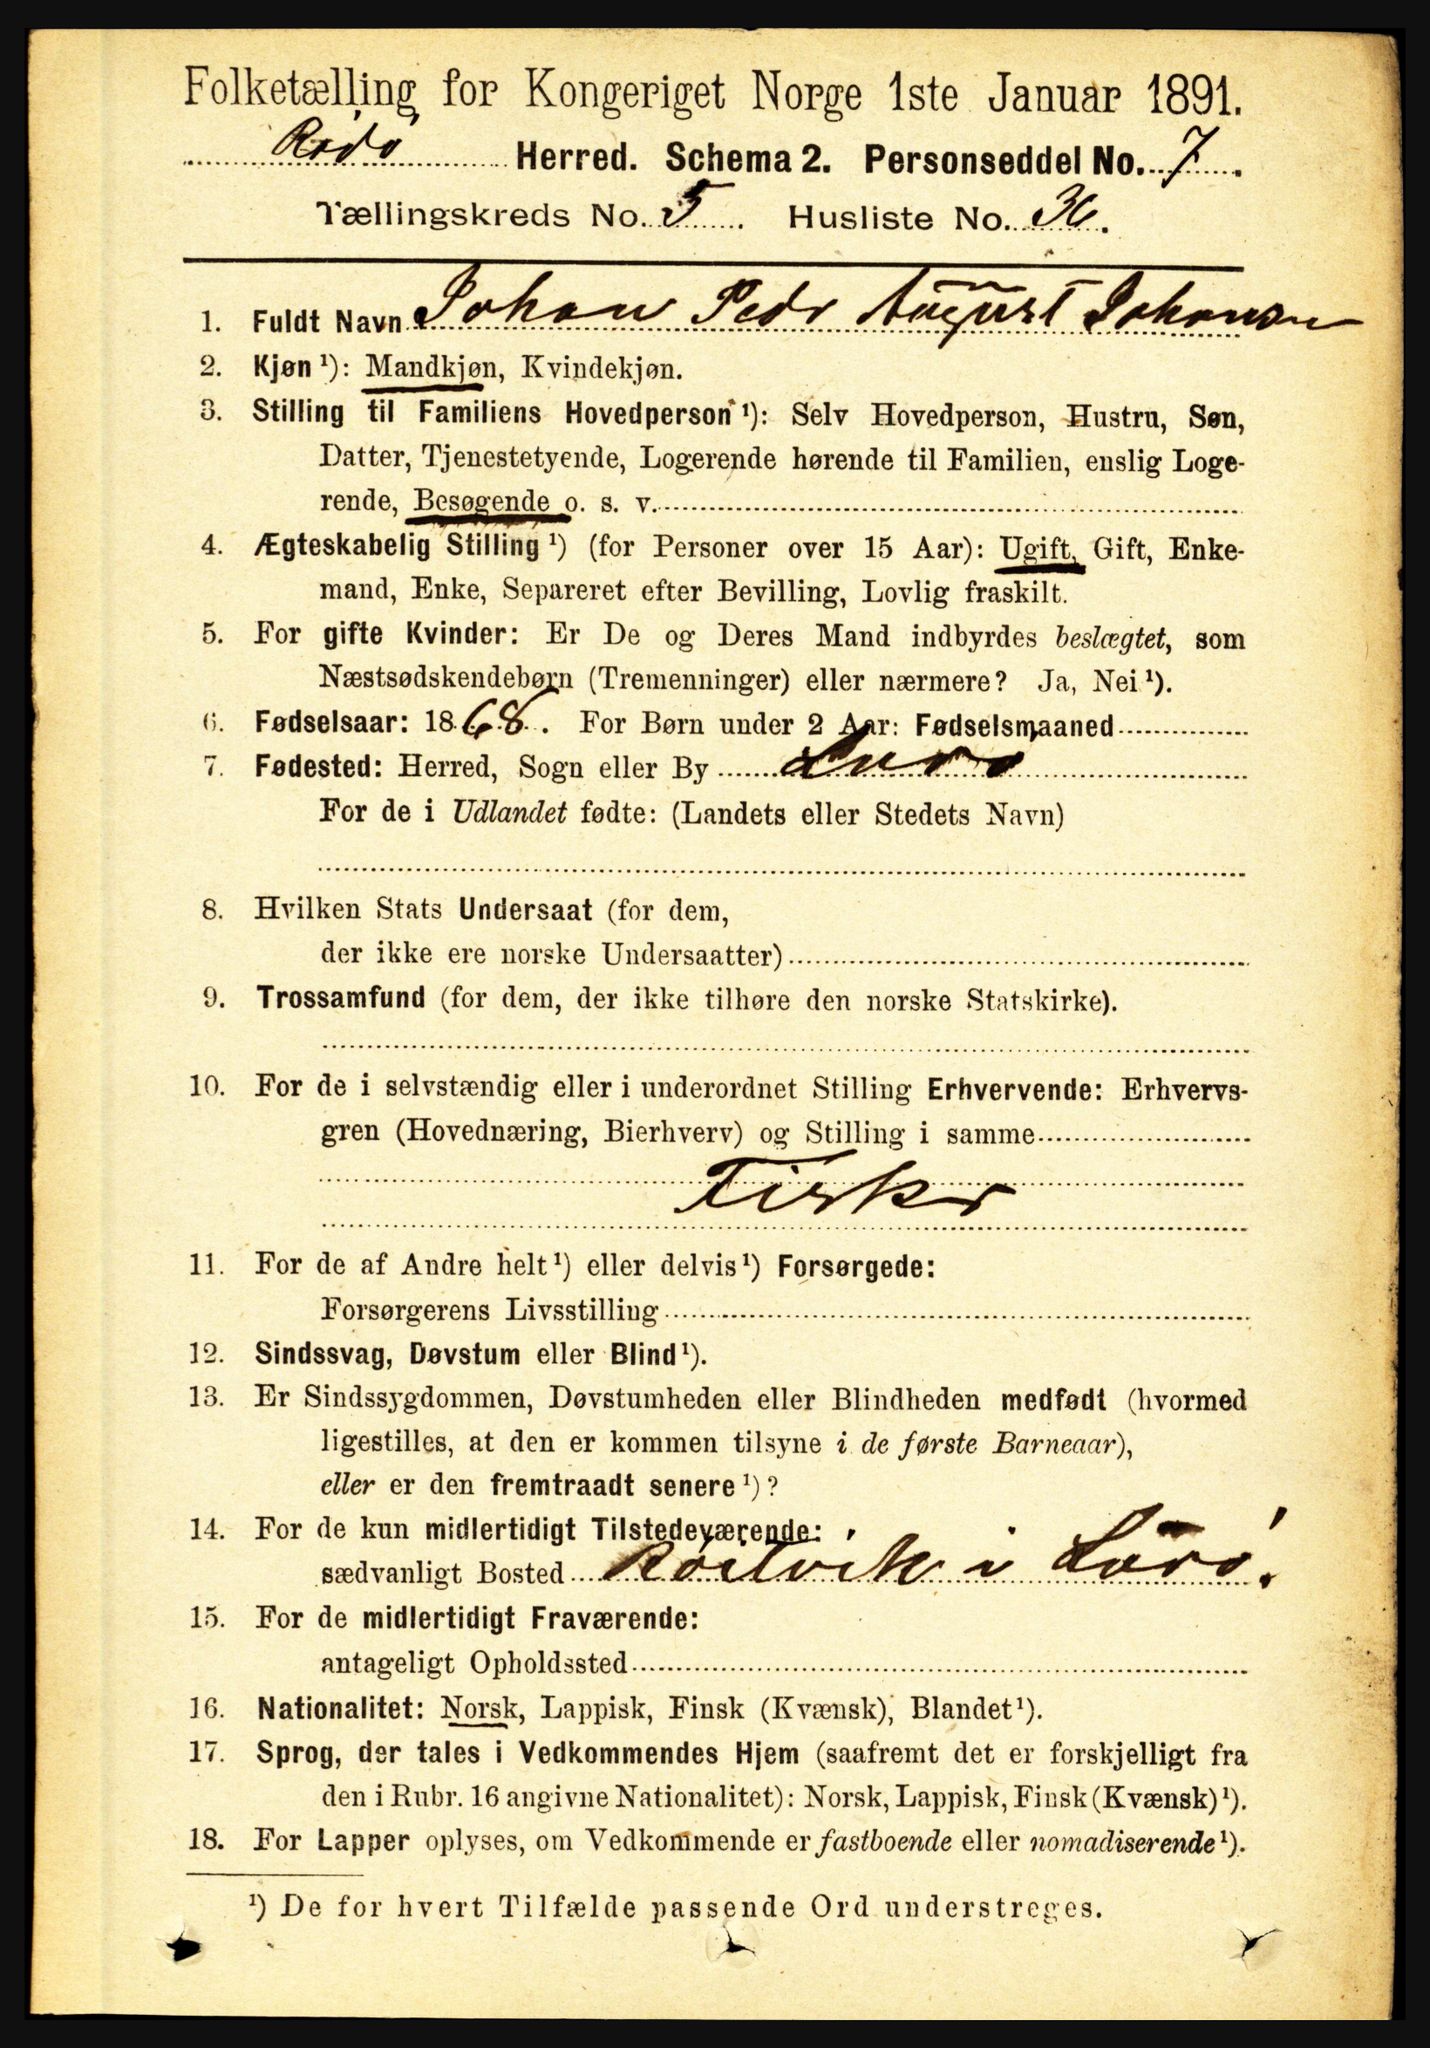 Folketælling for Kongeriget Norge 1ste Januar 1891.
Rödö Herred. Schema 2. Personseddel No. 7.
Tællingskreds No. 5. Husliste No. 36.
1. Fuldt Navn Johan Pedr August Johansen
2. Kjøn ¹): Mandkjøn, Kvindekjøn.
3. Stilling til Familiens Hovedperson ¹): Selv Hovedperson, Hustru, Søn,
Datter, Tjenestetyende, Logerende hørende til Familien, enslig Loge-
rende, Besøgende o. s. v.
4. Ægteskabelig Stilling ¹) (for Personer over 15 Aar): Ugift, Gift, Enke-
mand, Enke, Separeret efter Bevilling, Lovlig fraskilt.
5. For gifte Kvinder: Er De og Deres Mand indbyrdes beslægtet, som
Næstsødskendebørn (Tremenninger) eller nærmere? Ja, Nei ¹).
6. Fødselsaar: 1868. For Børn under 2 Aar: Fødselsmaaned
7. Fødested: Herred, Sogn eller By Lurö
For de i Udlandet fødte: (Landets eller Stedets Navn)
8. Hvilken Stats Undersaat (for dem,
der ikke ere norske Undersaatter)
9. Trossamfund (for dem, der ikke tilhøre den norske Statskirke).
10. For de i selvstændig eller i underordnet Stilling Erhvervende: Erhvervs-
gren (Hovednæring, Bierhverv) og Stilling i samme
Fisker
11. For de af Andre helt ¹) eller delvis ¹) Forsørgede:
Forsørgerens Livsstilling
12. Sindssvag, Døvstum eller Blind ¹).
13. Er Sindssygdommen, Døvstumheden eller Blindheden medfødt (hvormed
ligestilles, at den er kommen tilsyne i de første Barneaar),
eller er den fremtraadt senere ¹)?
14. For de kun midlertidigt Tilstedeværende:
sædvanligt Bosted i Lurö.
15. For de midlertidigt Fraværende:
antageligt Opholdssted
16. Nationalitet: Norsk, Lappisk, Finsk (Kvænsk), Blandet ¹).
17. Sprog, der tales i Vedkommendes Hjem (saafremt det er forskjelligt fra
den i Rubr. 16 angivne Nationalitet): Norsk, Lappisk, Finsk (Kvænsk) ¹).
18. For Lapper oplyses, om Vedkommende er fastboende eller nomadiserende ¹).
¹) De for hvert Tilfælde passende Ord understreges.